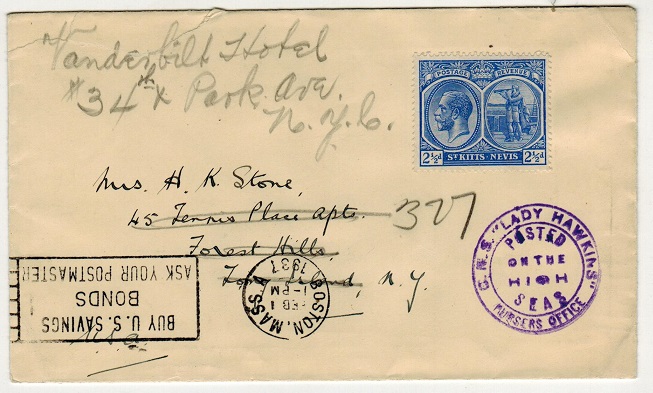 Vanderbilt Hotel
# 34th & Park Ave.
N.Y.C.
POSTAGE REVENUE
2½d ST KITTS-NEVIS 2½d
Mrs. H. K. Stone,
45 Tennis Place Apts.
327
Forest Hills,
Long Island, N.Y.
U.S.A.
C.N.S. "LADY HAWKINS"
POSTED
ON THE
HIGH
SEAS
PURSERS OFFICE
BOSTON, MASS.
FEB 1
1-PM
1937
BUY U.S. SAVINGS
BONDS
ASK YOUR POSTMASTER